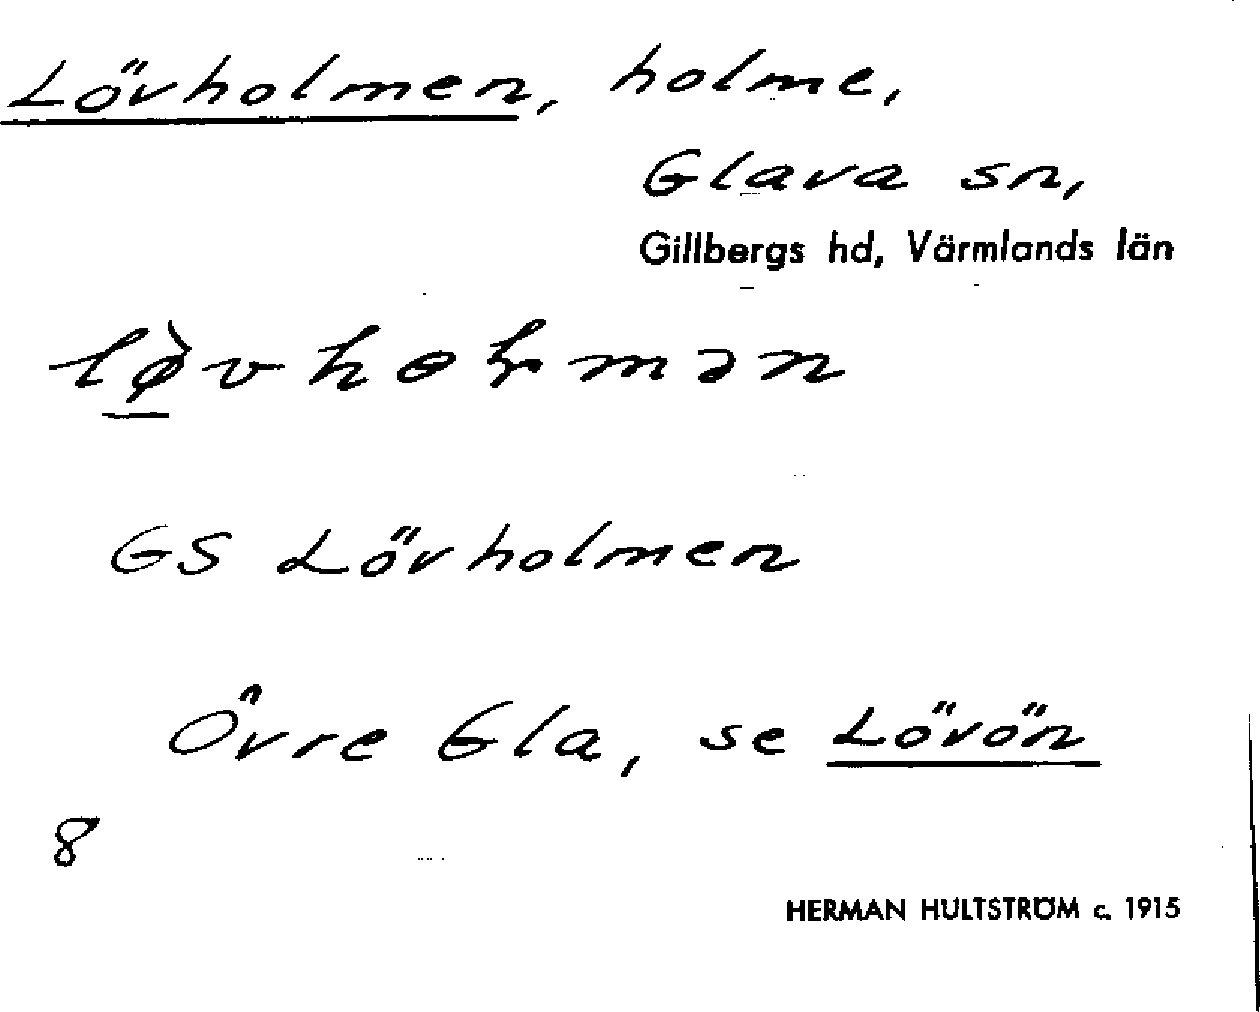 Lövholmen, holme,
Glava sn,
Gillbergs hd, Värmlands län
GS Lövholmen
Övre Gla, se Lövön
8
HERMAN HULTSTRÖM c. 1915